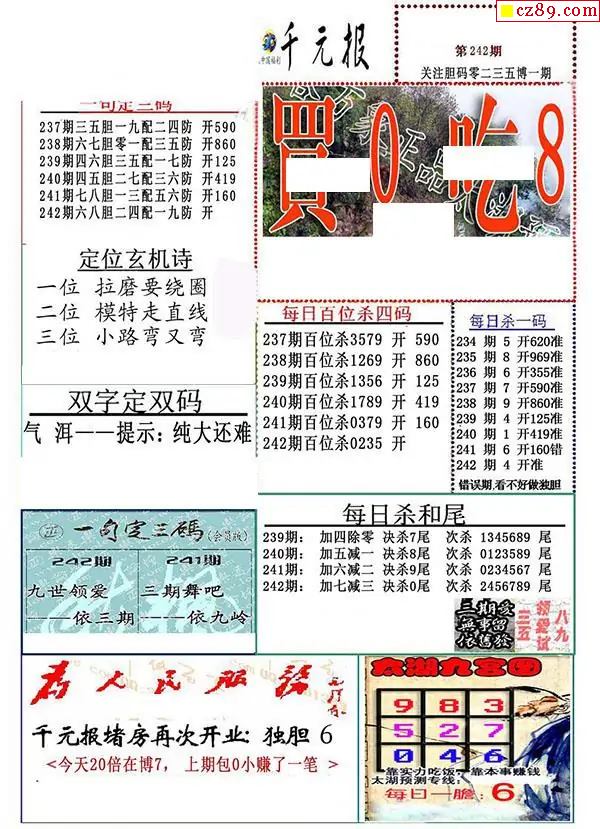 cz89.com
千元报
第242期
关注胆码零二三五博一期
一句定三码
237期三五胆一九配二四防 开590
238期六七胆零一配三五防 开860
239期四六胆三五配一七防 开125
240期四五胆二七配三六防 开419
241期七八胆一三配五六防 开160
242期六八胆二四配一九防 开
買0吃8
定位玄机诗
一位 拉磨要绕圈
二位 模特走直线
三位 小路弯又弯
每日百位杀四码
237期百位杀3579 开 590
238期百位杀1269 开 860
239期百位杀1356 开 125
240期百位杀1789 开 419
241期百位杀0379 开 160
242期百位杀0235 开
每日杀一码
234 期 5 开620准
235 期 8 开969准
236 期 6 开355准
237 期 7 开590准
238 期 9 开860准
239 期 4 开125准
240 期 1 开419准
241 期 6 开160错
242 期 4 开准
错误期,看不好做独胆
双字定双码
气 洱——提示: 纯大还难
每日杀和尾
239期: 加四除零 决杀7尾 次杀 1345689 尾
240期: 加五减一 决杀8尾 次杀 0123589 尾
241期: 加六减二 决杀9尾 次杀 0234567 尾
242期: 加七减三 决杀0尾 次杀 2456789 尾
一句定三碼(会员版)
242期 241期
九世领爱 三期舞吧
——依三期 ——依九岭
三期爱
無事留
依舊發
领爱试
三五
八九
為人民服務
千元报堵房再次开业: 独胆 6
<今天20倍在博7, 上期包0小赚了一笔 >
太湖九宫图
9 8 3
5 2 7
0 4 6
靠实力吃饭, 靠本事赚钱
太湖预测专线:
每日一膽: 6